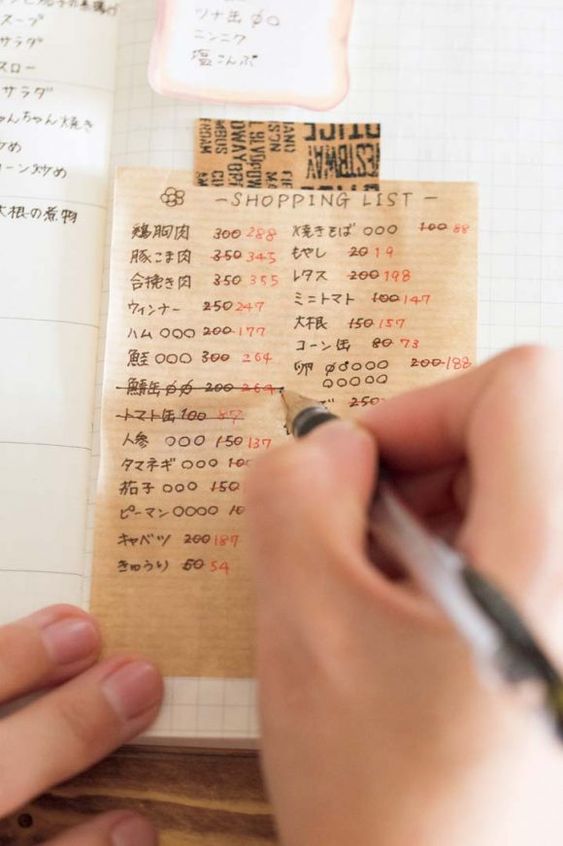 スープ
サラダ
スロー
サラダ
ちゃんちゃん焼き
炒め
コーン炒め
大根の煮物
ツナ缶 00
ニンニク
塩こんぶ
- SHOPPING LIST -
鶏胸肉 300 288
豚こま肉 350 345
合挽き肉 350 355
ウィンナー 250 247
ハム 000 200 177
鮭 000 300 264
鯖缶 00 200 264
トマト缶 100 87
人参 000 150 137
タマネギ 000
茄子 000 150
ピーマン 0000
キャベツ 200 187
きゅうり 50 54
焼きそば 000 100 88
もやし 20 19
レタス 200 198
ミニトマト 100 147
大根 150 157
コーン缶 80 73
卵 00000 200 188
00000
250